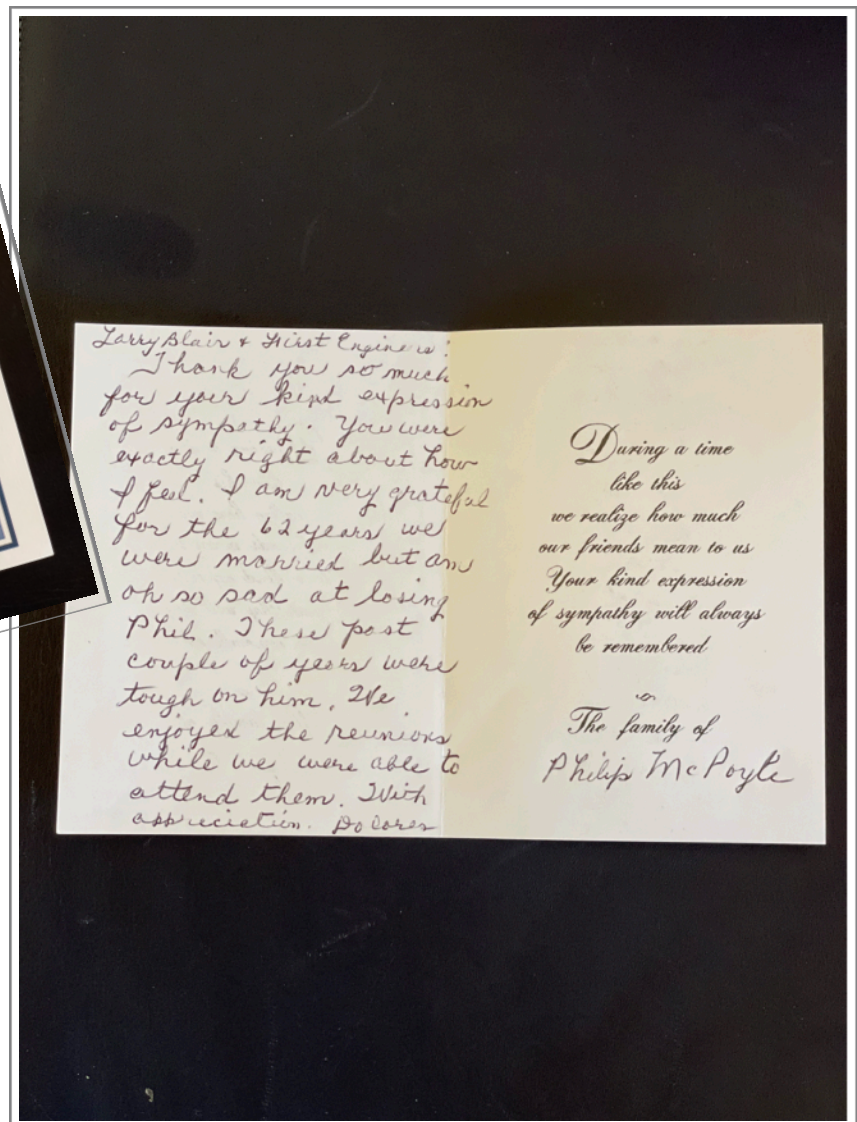 Larry Blair + First Engineers:
Thank you so much
for your kind expression
of sympathy. You were
exactly right about how
I feel. I am very grateful
for the 62 years we
were married but am
oh so sad at losing
Phil. These past
couple of years were
tough on him. We
enjoyed the reunions
while we were able to
attend them. With
appreciation. Dolores
During a time
like this
we realize how much
our friends mean to us
Your kind expression
of sympathy will always
be remembered
The family of
Philip McPoyle